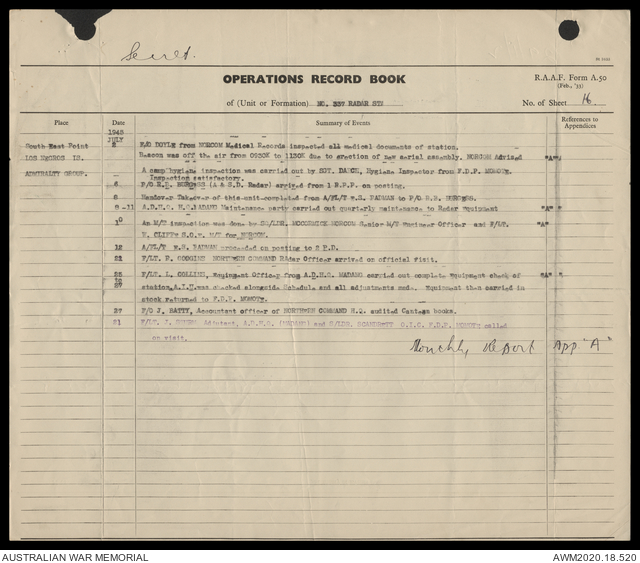 Secret.
OPERATIONS RECORD BOOK
R.A.A.F. Form A.50
(Feb., '33)
of (Unit or Formation) NO. 337 RADAR STN
No. of Sheet 16
Place Date Summary of Events References to Appendices
1945
JULY
South East Point 2 F/O DOYLE from NORCOM Medical Records inspected all medical documents of station.
LOS NEGROS IS. Beacon was off the air from 0930K to 1130K due to erection of new serial assembly. NORCOM Advised "A"
ADMIRALTY GROUP. A camp hygiene inspection was carried out by SGT. Hygiene Inspector from F.D.P. MOMOTE.
Inspection satisfactory.
6 P/O R.B. BURGESS (A & S.D. Radar) arrived from 1 R.P.P. on posting.
8 Handover Takeover of this unit completed from A/FL/T W.S. PADMAN to P/O R.B. BURGESS.
8-11 A.D.H.Q. MADANG Maintenance party carried out quarterly maintenance to Radar Equipment "A"
10 An M/T inspection was done by SQ/LDR. McCORMICK NORCOM Senior M/T Engineer Officer and F/LT. "A"
K. CLIFFE S.O.E. M/T for NORCOM.
12 A/FL/T W.S. PADMAN proceeded on posting to 2 P.D.
21 F/LT. P. GOGGINS NORTHERN COMMAND RAdar Officer arrived on official visit.
25 F/LT. L. COLLINS, Equipment Officer from A.D.H.Q. MADANG carried out complete equipment check of "A"
to
27 station, A.I.U. was checked alongside Schedule and all adjustments made. Equipment then carried in
stock returned to F.D.P. MOMOTE.
27 P/O J. BATTY, Accountant officer of NORTHERN COMMAND H.Q. audited Canteen books.
31 F/LT. J. Adjutant, A.D.H.Q. (MADANG) and S/LDR. O.I.C. F.D.P. MOMOTE called
on visit.
Monthly Report App "A"
AUSTRALIAN WAR MEMORIAL
AWM2020.18.520